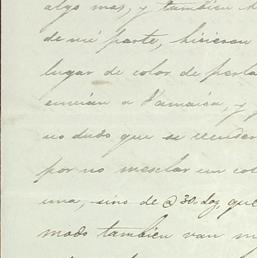 algo mas, y tambien
de mi parte, hicieran
lugar de color de perla
envian a Jamaica, y
no dudo que se vender
por no mesclar un co
una, sino de @ 30. Loz, que
modo tambien van m